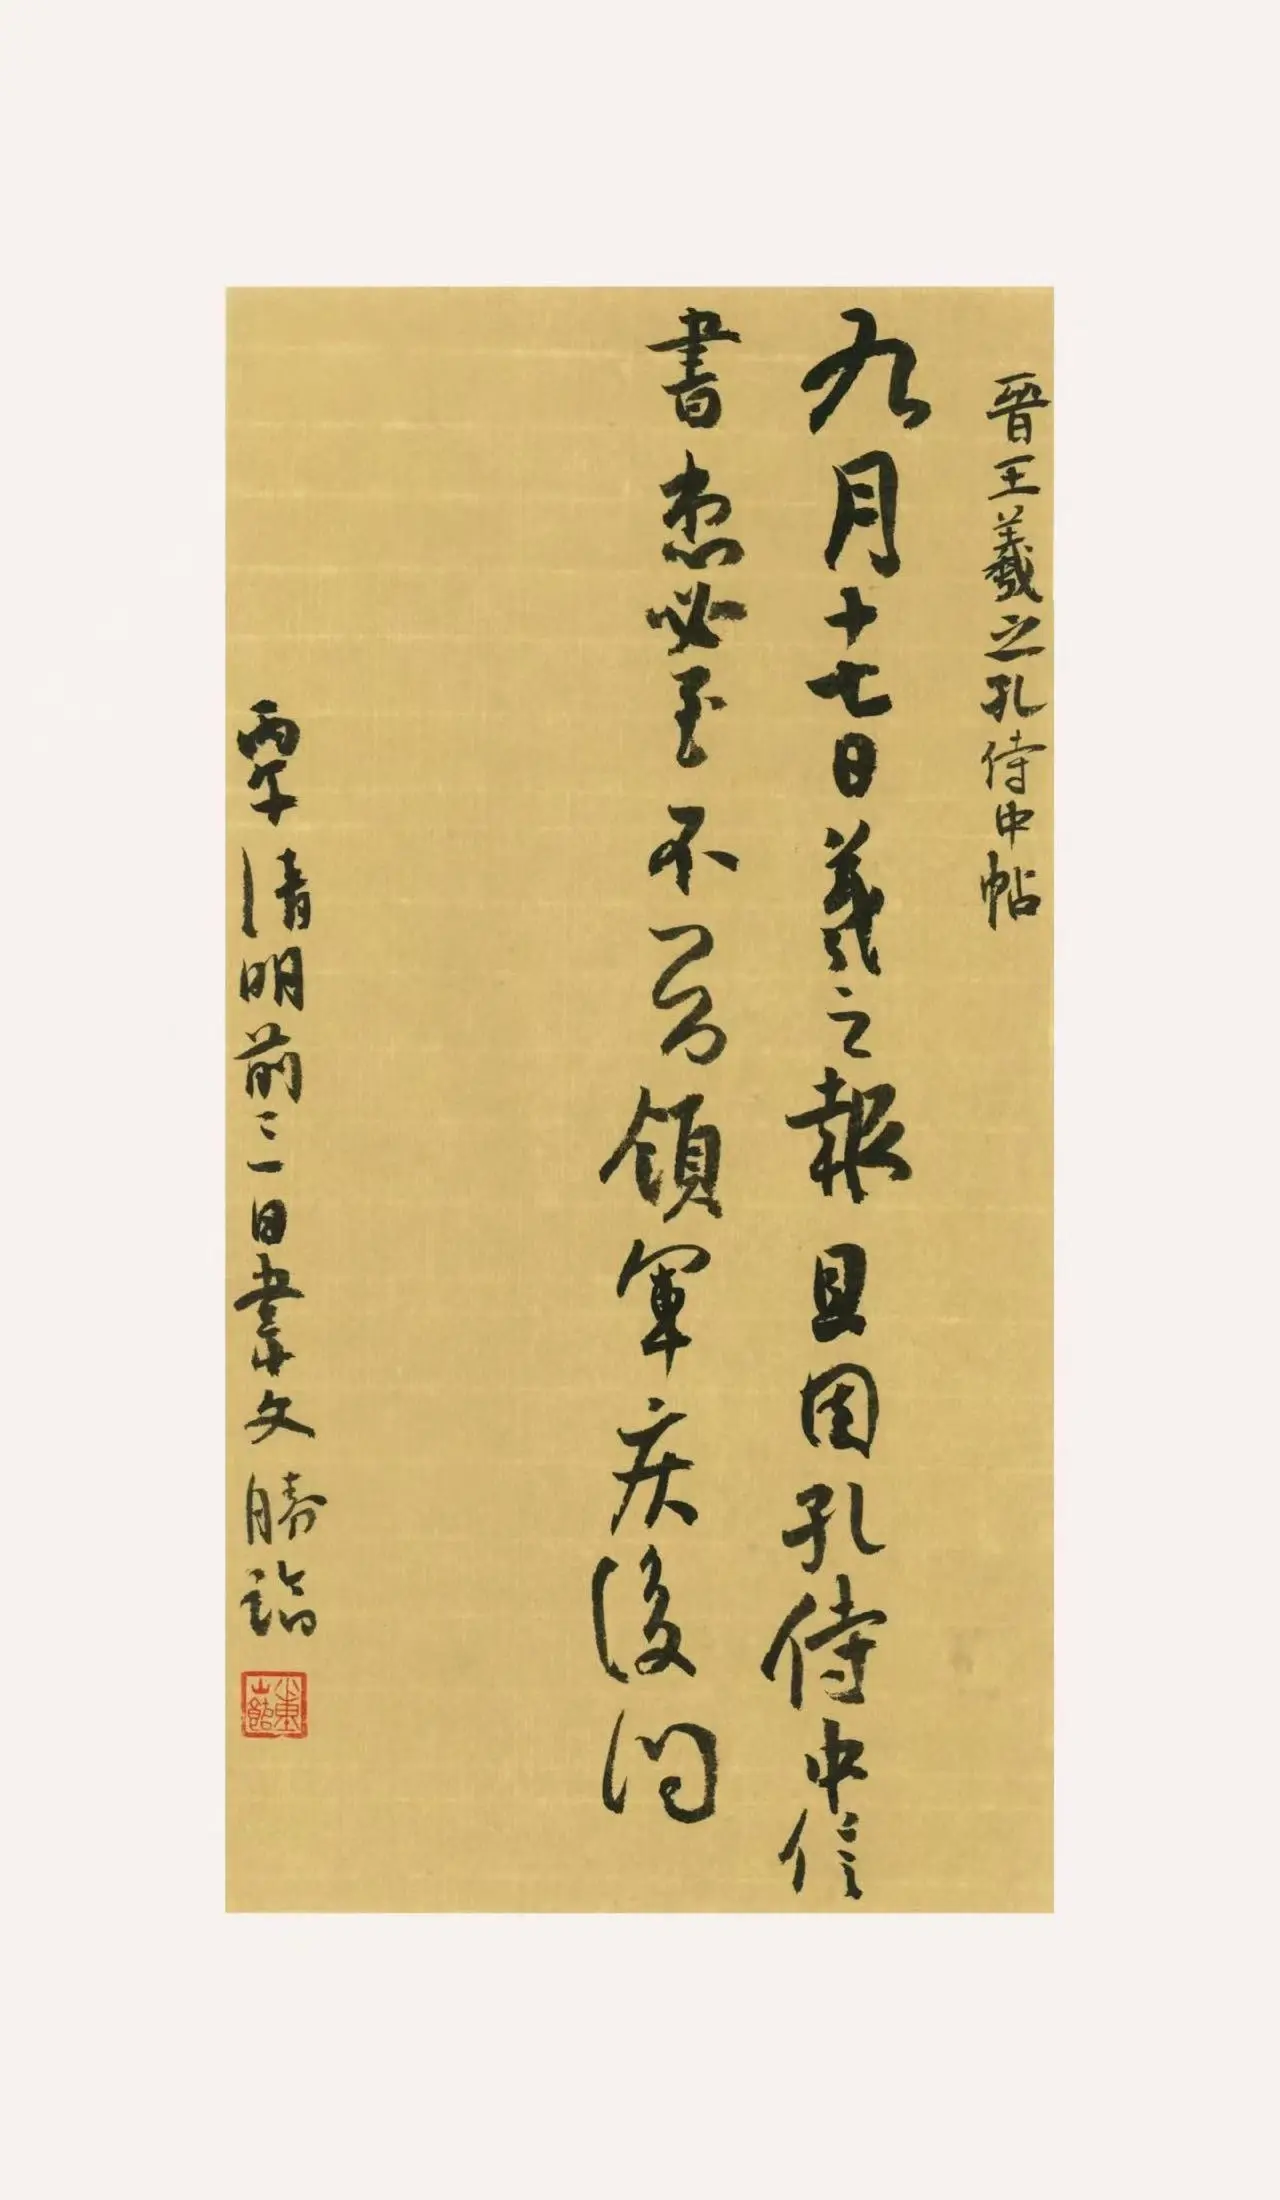 晋王羲之孔侍中帖
九月十七日羲之報且因孔侍中信
書想必至不知領軍疾後問
丙午清明前三日韋文勝臨